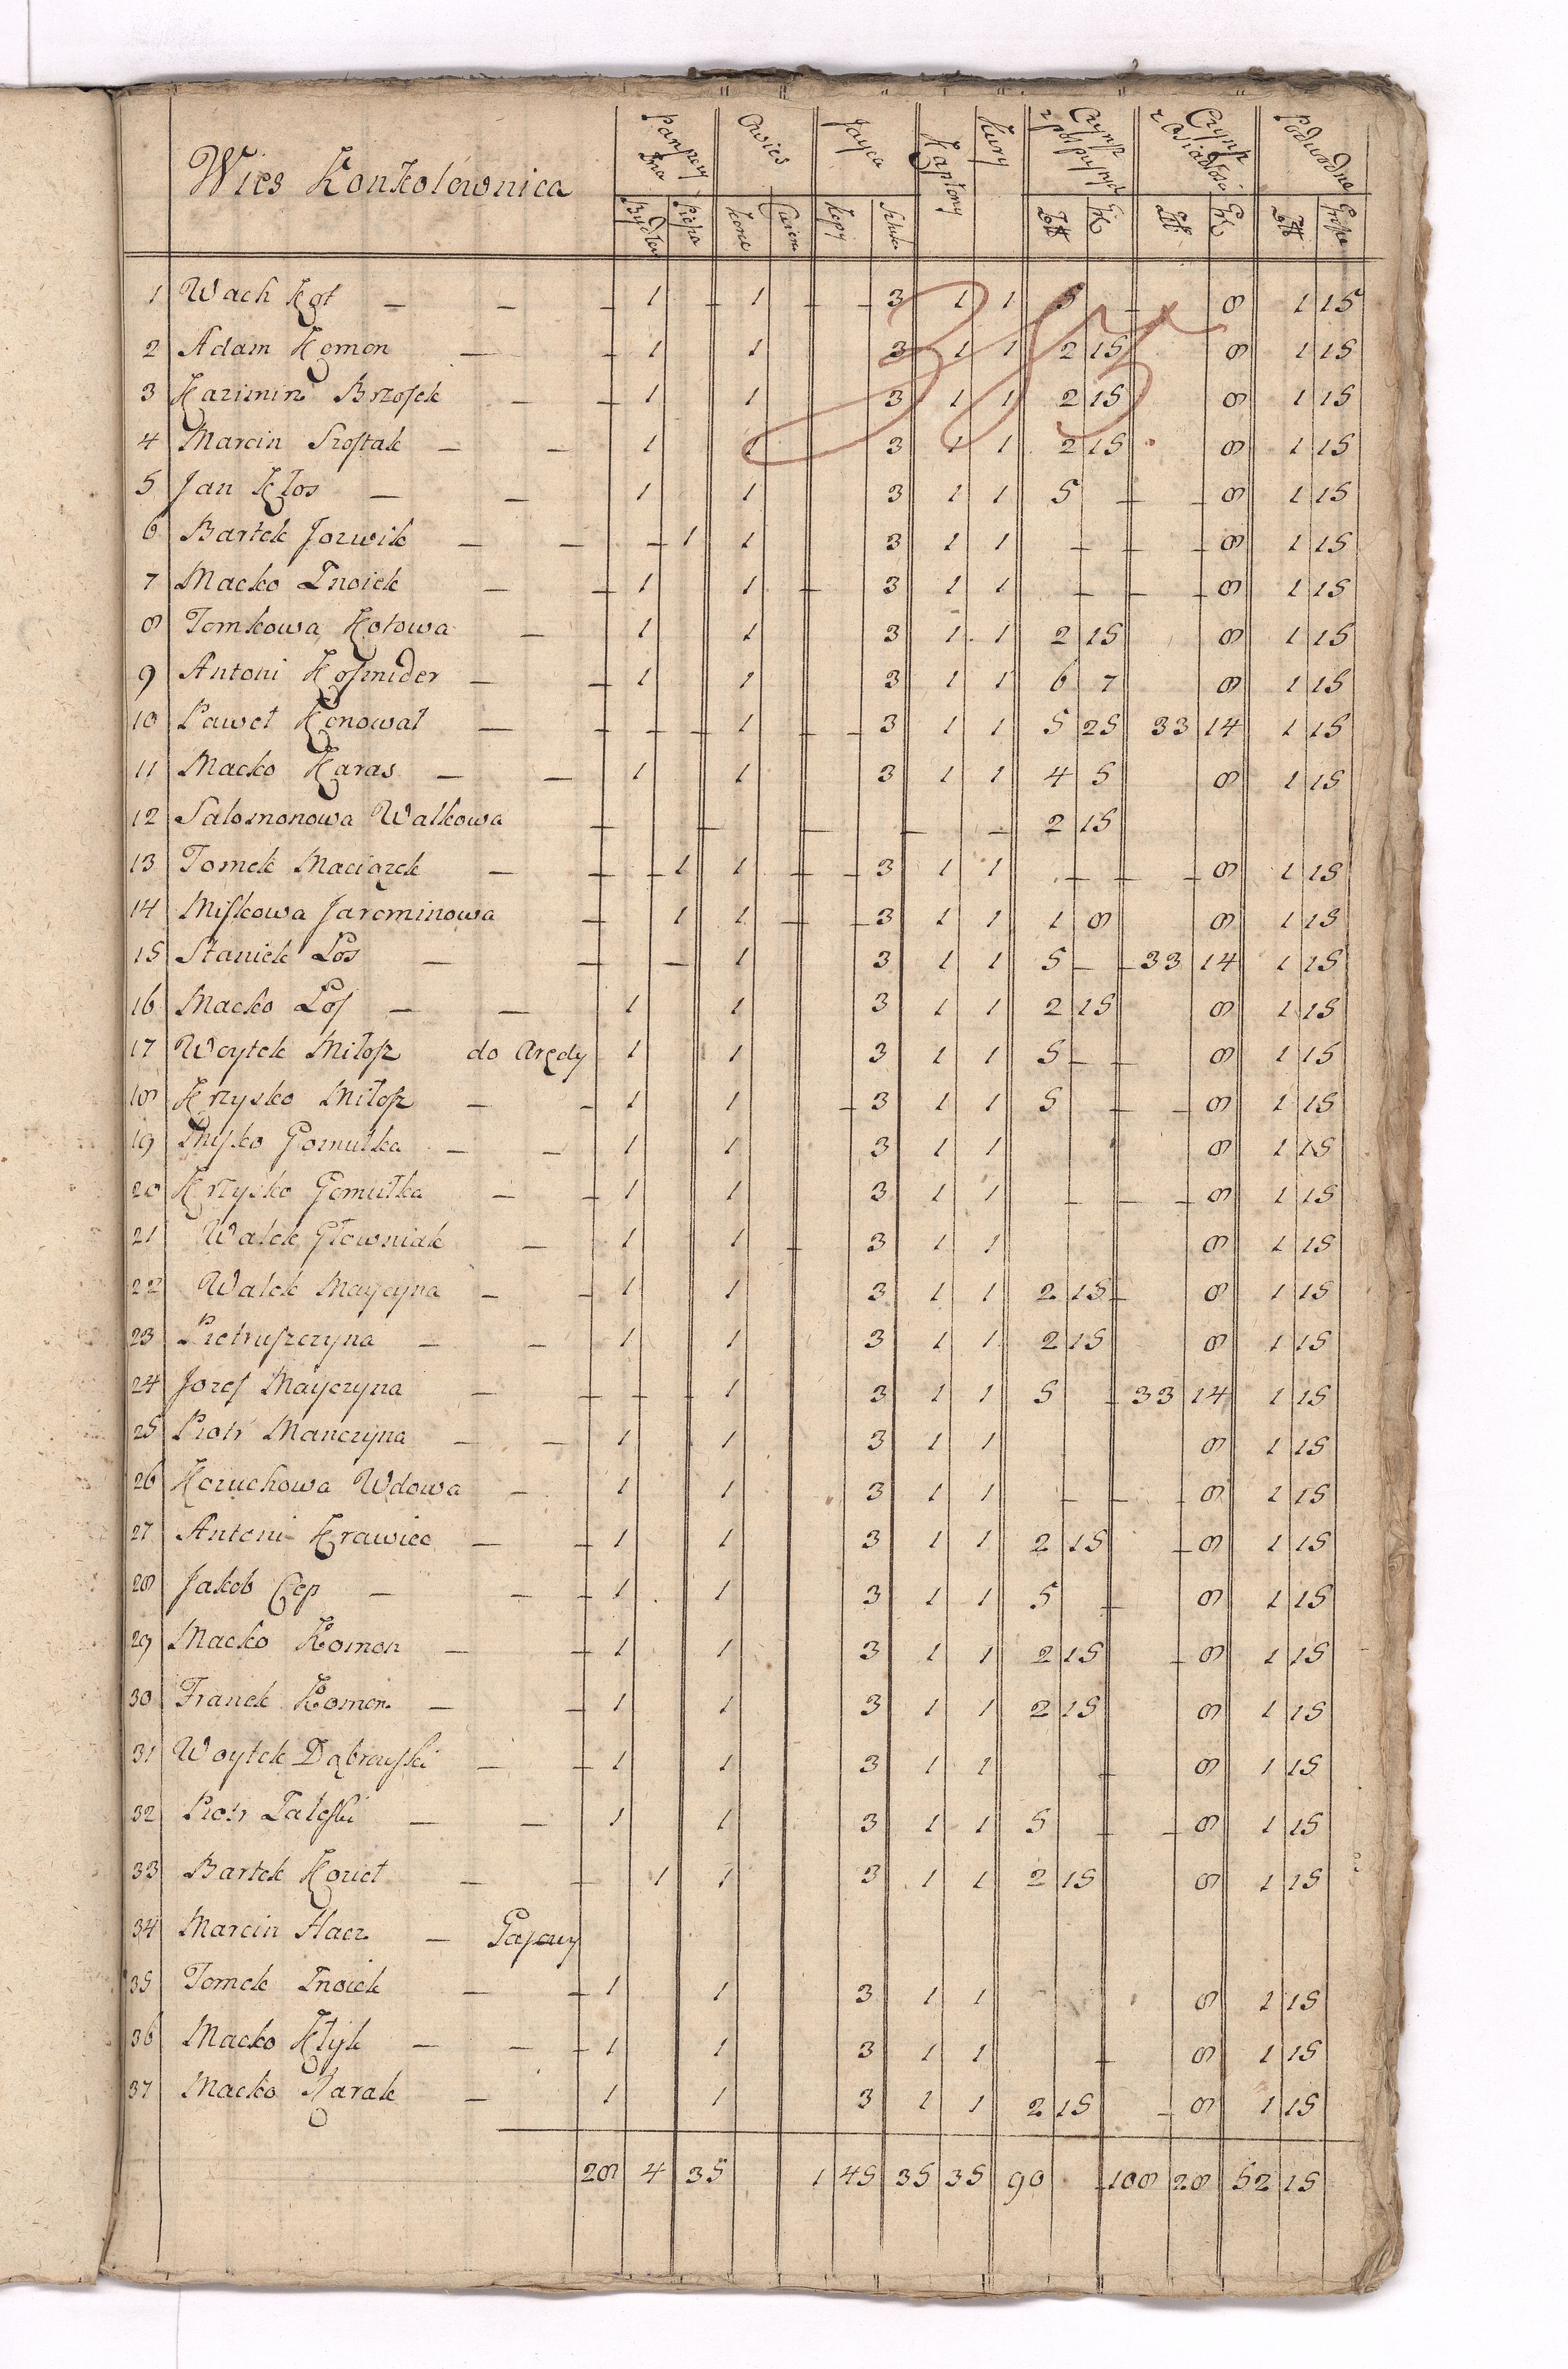 Wies Konkolownica Owies Jayca Kapłony Kury Czynsz Czynsz Podwodne
Bydłem Piesza Korce Kopy Sztuki Zł Gr Zł Gr Zł Grosze
1 Wach Kot — — — 1 — 1 — — 3 1 1 5 — 8 1 15
2 Adam Komon — — 1 1 3 1 1 2 15 8 1 15
3 Kazimirz Brzosek — — 1 1 3 1 1 2 15 8 1 15
4 Marcin Szostak — — 1 1 3 1 1 2 15 8 1 15
5 Jan Kłos — — 1 1 3 1 1 5 — — 8 1 15
6 Bartek Jozwik — — — 1 1 3 1 1 — — — 8 1 15
7 Macko Znoiek — — 1 1 — 3 1 1 — — — 8 1 15
8 Tomkowa Kotowa — 1 1 3 1 1 2 15 8 1 15
9 Antoni Kosmider — — 1 1 3 1 1 6 7 8 1 15
10 Paweł Konował — — — — 1 — — 3 1 1 5 25 33 14 1 15
11 Macko Karas — — 1 1 3 1 1 4 5 8 1 15
12 Salomonowa Walkowa — — — — — 2 15
13 Tomek Maciążek — — — 1 1 — — 3 1 1 — — — 8 1 15
14 Miskowa Jarominowa — 1 1 — — 3 1 1 1 8 8 1 15
15 Staniek Łos — — — 1 3 1 1 5 — — 33 14 1 15
16 Macko Łos — — 1 1 3 1 1 2 15 8 1 15
17 Woytek Miłosz do Arędy 1 1 3 1 1 5 — — 8 1 15
18 Krzysko Miłosz — — 1 1 — 3 1 1 5 — — 8 1 15
19 Misko Gomułka — — 1 1 3 1 1 8 1 15
20 Krzysko Gomułka — — 1 1 3 1 1 — — — 8 1 15
21 Walek Głowniak — 1 1 — 3 1 1 8 1 15
22 Walek Mayczyna — — 1 1 3 1 1 2 15 — 8 1 15
23 Pietruszczyna — — 1 1 3 1 1 2 15 8 1 15
24 Jozef Mayczyna — — — — 1 3 1 1 5 — 33 14 1 15
25 Piotr Manczyna — — 1 1 3 1 1 8 1 15
26 Kozuchowa Wdowa — 1 1 3 1 1 — — — 8 1 15
27 Antoni Krawiec — — 1 1 3 1 1 2 15 — 8 1 15
28 Jakob Cep — — — 1 1 3 1 1 5 — 8 1 15
29 Macko Komon — — 1 1 3 1 1 2 15 — 8 1 15
30 Franek Komon — — 1 1 3 1 1 2 15 8 1 15
31 Woytek Dąbrowski — — 1 1 3 1 1 — 8 1 15
32 Piotr Zaleski — — 1 1 3 1 1 5 — — 8 1 15
33 Bartek Kozieł — — 1 1 3 1 1 2 15 8 1 15
34 Marcin — Gajowy
35 Tomek Znoiek — — 1 1 3 1 1 8 1 15
36 Macko Kłyk — — — 1 1 3 1 1 — 8 1 15
37 Macko Karak — 1 1 3 1 1 2 15 — 8 1 15
28 4 35 1 45 35 35 90 — 108 28 52 15